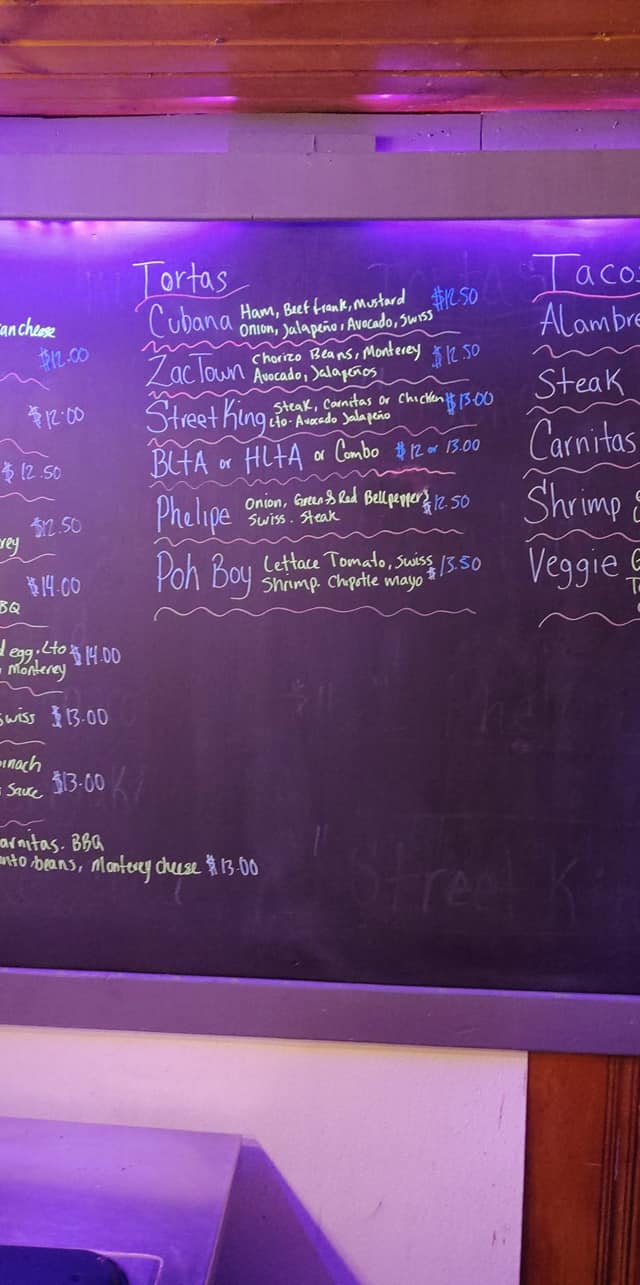 an cheese
$12.00
$12.00
$12.50
$12.50
rey
$14.00
BQ
d egg. Lto $14.00
Monterey
swiss $13.00
inach
Sauce $13.00
arnitas. BBQ
nto beans, Monterey cheese $13.00
Tortas
Cubana Ham, Beef frank, Mustard $12.50
Onion, Jalapeño, Avocado, Swiss
ZacTown Chorizo Beans, Monterey $12.50
Avocado, Jalapeños
Street King Steak, Carnitas or Chicken $13.00
Lto. Avocado Jalapeño
BLTA or HLTA or Combo $12 or 13.00
Phelipe Onion, Green & Red Bellpeppers $12.50
Swiss. Steak
Poh Boy Lettace Tomato, Swiss $13.50
Shrimp. Chipotle mayo
Taco
Alambre
Steak
Carnitas
Shrimp
Veggie
Street Ki